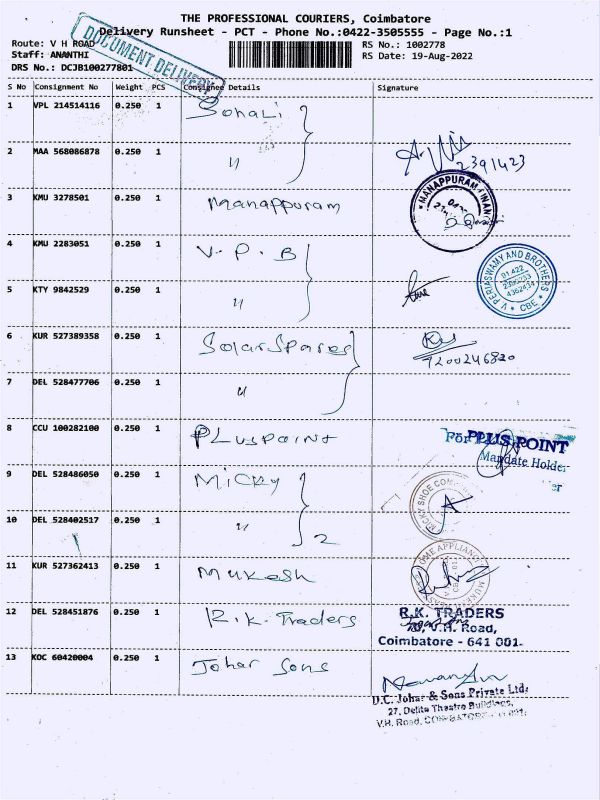 THE PROFESSIONAL COURIERS, Coimbatore
Delivery Runsheet - PCT - Phone No.:0422-3505555 - Page No.:1
Route: V H ROAD
Staff: ANANTHI
DRS No.: DCJB100277801
RS No.: 1002778
RS Date: 19-Aug-2022
DOCUMENT DELIVERY
S No Consignment No Weight PCS Consignee Details Signature
1 VPL 214514116 0.250 1 Sonali
2 MAA 568086878 0.250 1 〃 2391423
3 KMU 3278501 0.250 1 Manappuram
MANAPPURAM FINAN
4 KMU 2283051 0.250 1 V.P.B
V. PERIASWAMY AND BROTHERS
CBE
5 KTY 9842529 0.250 1 〃
6 KUR 527389358 0.250 1 Solar Spares
7200246820
7 DEL 528477706 0.250 1 〃
8 CCU 100282100 0.250 1 Pluspoint
For PPLUS POINT
Mandate Holder
9 DEL 528486050 0.250 1 Micky
MICKY SHOE COM
10 DEL 528402517 0.250 1 〃 2
11 KUR 527362413 0.250 1 Mukesh
OME APPLIANC
12 DEL 528451876 0.250 1 R.K. Traders
R.K. TRADERS
V.H. Road,
Coimbatore - 641 001.
13 KOC 60420004 0.250 1 Johar Sons
D.C. Johar & Sons Private Ltd.
27, Delite Theatre Buildings,
V.H. Road,